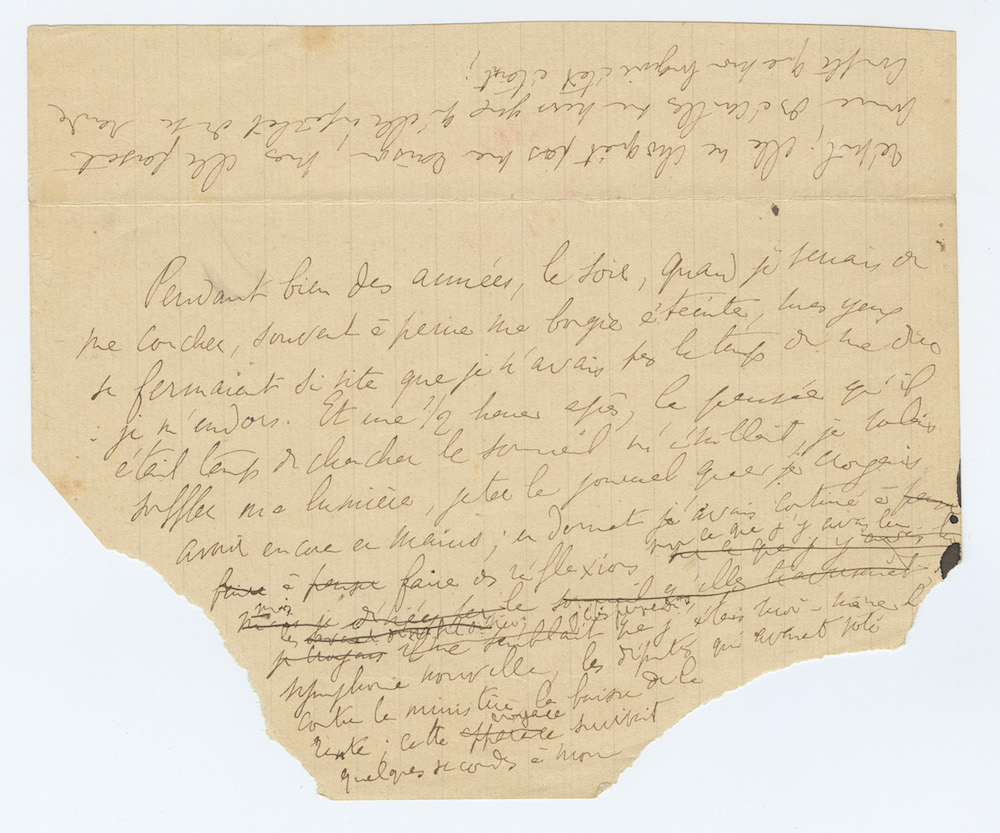 Pendant bien des années, le soir, quand je venais de
me coucher, souvent à peine ma bougie éteinte, mes yeux
se fermaient si vite que je n'avais pas le temps de me dire
je m'endors. Et une 1/2 heure après, la pensée qu'il
était temps de chercher le sommeil m'éveillait, je voulais
souffler ma lumière, jeter le journal que je croyais
avoir encore en mains; en dormant j'avais continué à
sur ce que j'y avais lu
faire à penser faire des réflexions sur ce que j'y avais lu
mais
je croyais il me semblait que j'étais moi-même la
symphonie nouvelle, les députés qui avaient voté
contre le ministère, la baisse de la
croyance
rente; cette survivait
quelques secondes à mon
réveil; elle ne choquait pas ma raison, mais elle pesait
comme des écailles sur mes yeux qu'elle empêchait de se rendre
compte que ma bougie était éteinte;